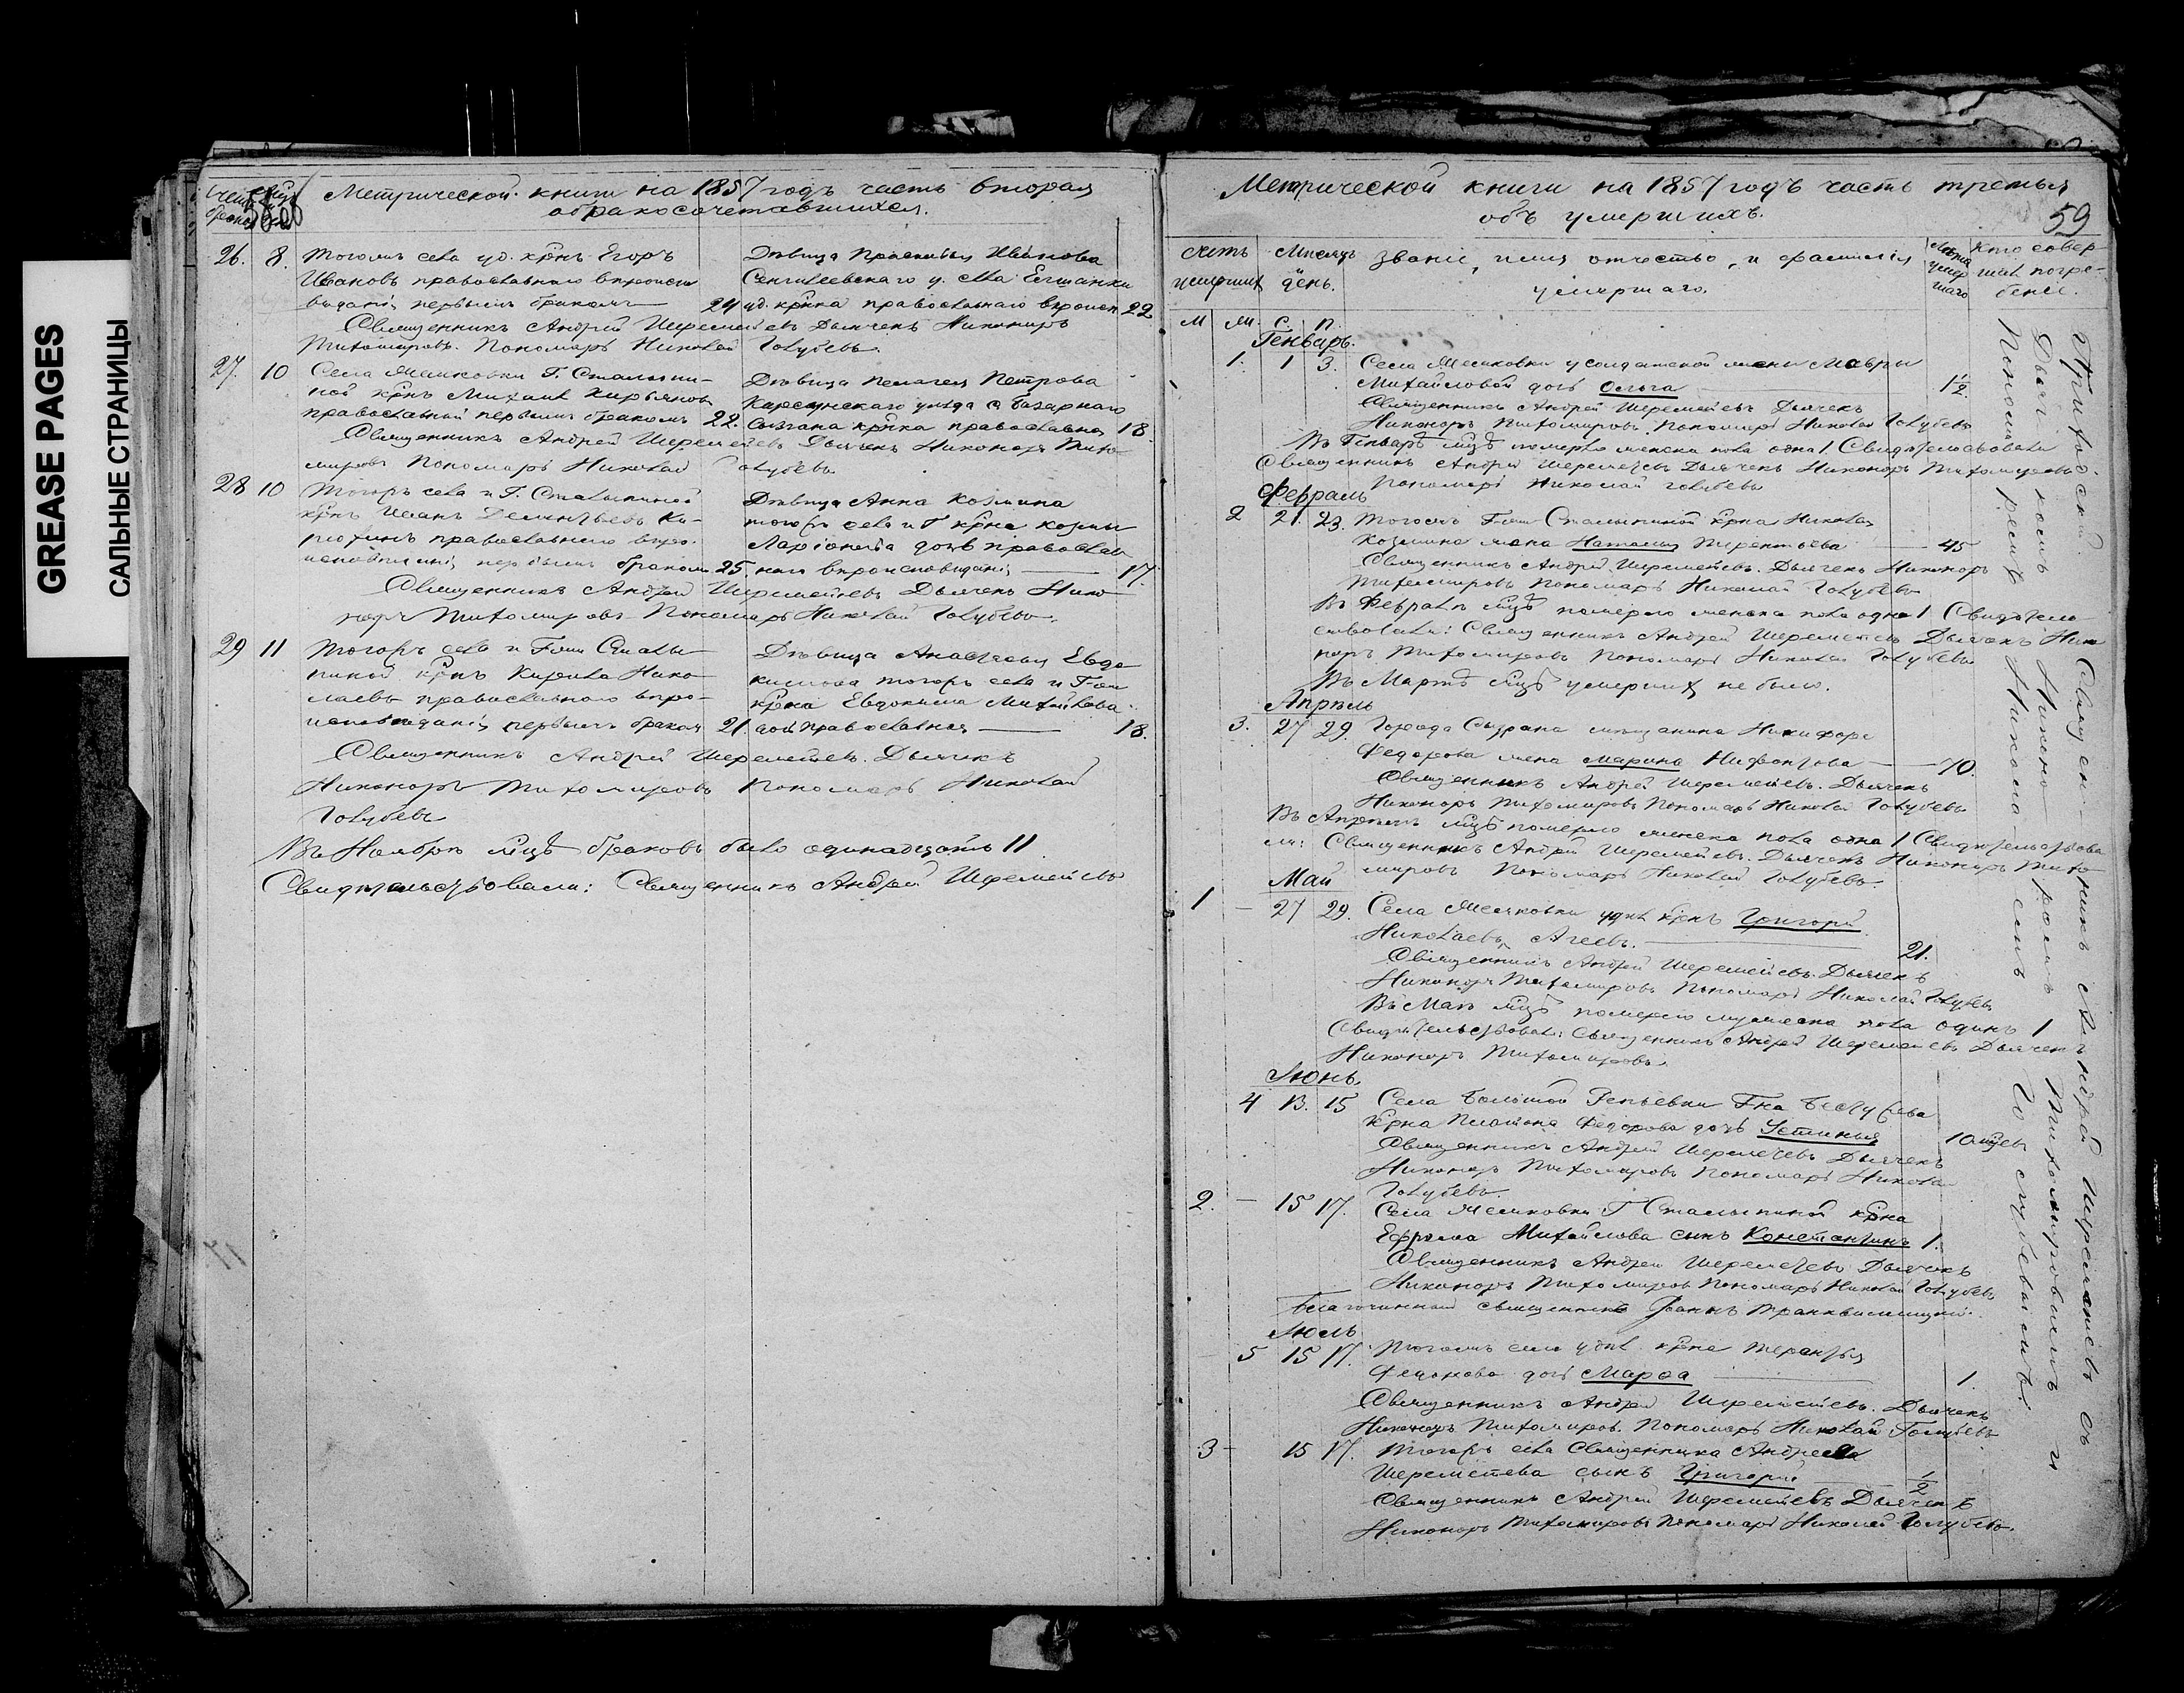 GREASE PAGES
САЛЬНЫЕ СТРАНИЦЫ
Метрической книги на 1857 годъ часть вторая
о бракосочетавшихся.
26. 8. Тогожъ села уд. крнъ Егоръ
Ивановъ православнаго вѣроиспо
вѣданія первымъ бракомъ 24
Дѣвица Прасковья Иванова
Сенгилеевскаго у. с.
уд. крнка православнаго вѣроисп 22
Священникъ Андрей Шереметевъ Дьячекъ Никоноръ
Тихомировъ. Пономарь Николай Голубевъ.
27. 10 Села Г. Столыпи-
ной крнъ Михаилъ Кирьяновъ
православный первымъ бракомъ 22.
Дѣвица Пелагея Петрова
Карсунскаго уѣзда с Базарнаго
Сызгана крнка православная 18.
Священникъ Андрей Шереметевъ Дьячекъ Никоноръ Тихо-
мировъ Пономарь Николай Голубевъ
28 10 Тогожъ села и Г. Столыпиной
крнъ Иванъ Дементьевъ Ки-
рюхинъ православнаго вѣро-
исповѣданія первымъ бракомъ 25.
Дѣвица Анна Козмина
тогожъ села и Г крна Козмы
Ларіонова дочь православ
наго вѣроисповѣданія 17.
Священникъ Андрей Шереметевъ Дьячекъ Нико
норъ Тихомировъ Пономарь Николай Голубевъ.
29 11 Тогожъ села и Гжи Столы-
пиной крнъ Кирила Нико-
лаевъ православнаго вѣро-
исповѣданія первымъ бракомъ 21.
Дѣвица Анастасья Евдо
кимова тогожъ села и Гжи
крна Евдокима Михайлова
дочь православная 18.
Священникъ Андрей Шереметевъ. Дьячекъ
Никоноръ Тихомировъ Пономарь Николай
Голубевъ
Въ Ноябрѣ мцѣ браковъ было одинадцать 11
Свидѣтельствовали: Священникъ Андрей Шереметевъ
Метрической книги на 1857 годъ часть третья
объ умершихъ.
59
Счетъ умершихъ
Мѣсяцъ и день.
Званіе, имя отчество, и фамилія
умершаго.
Лѣта умер шаго
Кто совер-
шалъ погре-
беніе.
М Ж. С. П.
Генварь.
1. 1 3. Села у солдатской жены Мавры
Михайловой дочь Ольга 1 1/2.
Священникъ Андрей Шереметевъ Дьячекъ
Никоноръ Тихомировъ. Пономарь Николай Голубевъ
Въ Генварѣ мцѣ померло женска пола одна 1 Свидѣтельствовали
Священникъ Андрей Шереметевъ Дьячекъ Никоноръ Тихомировъ
Пономарь Николай Голубевъ
Февраль
2 21. 23. Тогожъ Гжи Столыпиной крна Николая
Козмина жена Наталья Терентьева 45
Священникъ Андрей Шереметевъ. Дьячекъ Никоноръ
Тихомировъ Пономарь Николай Голубевъ
Въ Февралѣ мцѣ померло женска пола одна 1 Свидѣтель
ствовали: Священникъ Андрей Шереметевъ Дьячекъ Нико
норъ Тихомировъ Пономарь Николай Голубевъ
Въ Мартѣ мцѣ умершихъ не было.
Апрѣль
3. 27 29. Города Сызрана мѣщанина Никифора
Федорова жена Марина Нифонтова 70.
Священникъ Андрей Шереметевъ. Дьячекъ
Никоноръ Тихомировъ Пономарь Николай Голубевъ
Въ Апрѣлѣ мцѣ померло женска пола одна 1 Свидѣтельствова
ли: Священникъ Андрей Шереметевъ. Дьячекъ Никоноръ Тихо
мировъ Пономарь Николай Голубевъ.
Май
1 — 27 29. Села удл крнъ Григорій
Николаевъ Агеевъ. 21.
Священникъ Андрей Шереметевъ. Дьячекъ
Никоноръ Тихомировъ Пономарь Николай Голубевъ
Въ Маѣ мцѣ померло мужеска пола одинъ 1
Свидѣтельствовали: Священникъ Андрей Шереметевъ Дьячекъ
Никоноръ Тихомировъ.
Іюнь.
4 13. 15 Села Большой Репьевки Гна
крна Платона Федорова дочь Устинья 10 мцевъ
Священникъ Андрей Шереметевъ Дьячекъ
Никоноръ Тихомировъ Пономарь Николай
Голубевъ.
2. — 15 17. Села Г Столыпиной крна
Ефрема Михайлова сынъ Константинъ 1.
Священникъ Андрей Шереметевъ Дьячекъ
Никоноръ Тихомировъ Пономарь Николай Голубевъ
Благочинный священникъ Іоаннъ Транквилицкій.
Іюль
5 15 17. Тогожъ села удл. крна Терентья
дочь Марѳа 1.
Священникъ Андрей Шереметевъ. Дьячекъ
Никоноръ Тихомировъ. Пономарь Николай Голубевъ
3 — 15 17. Тогожъ села Священника Андрея
Шереметева сынъ Григорій 1/2
Священникъ Андрей Шереметевъ Дьячекъ
Никоноръ Тихомировъ Пономарь Николай Голубевъ.
Приходскій Священникъ Андрей Шереметевъ съ
Дьячкомъ Никоноромъ Тихомировымъ и
Пономаремъ Николаемъ Голубевымъ.